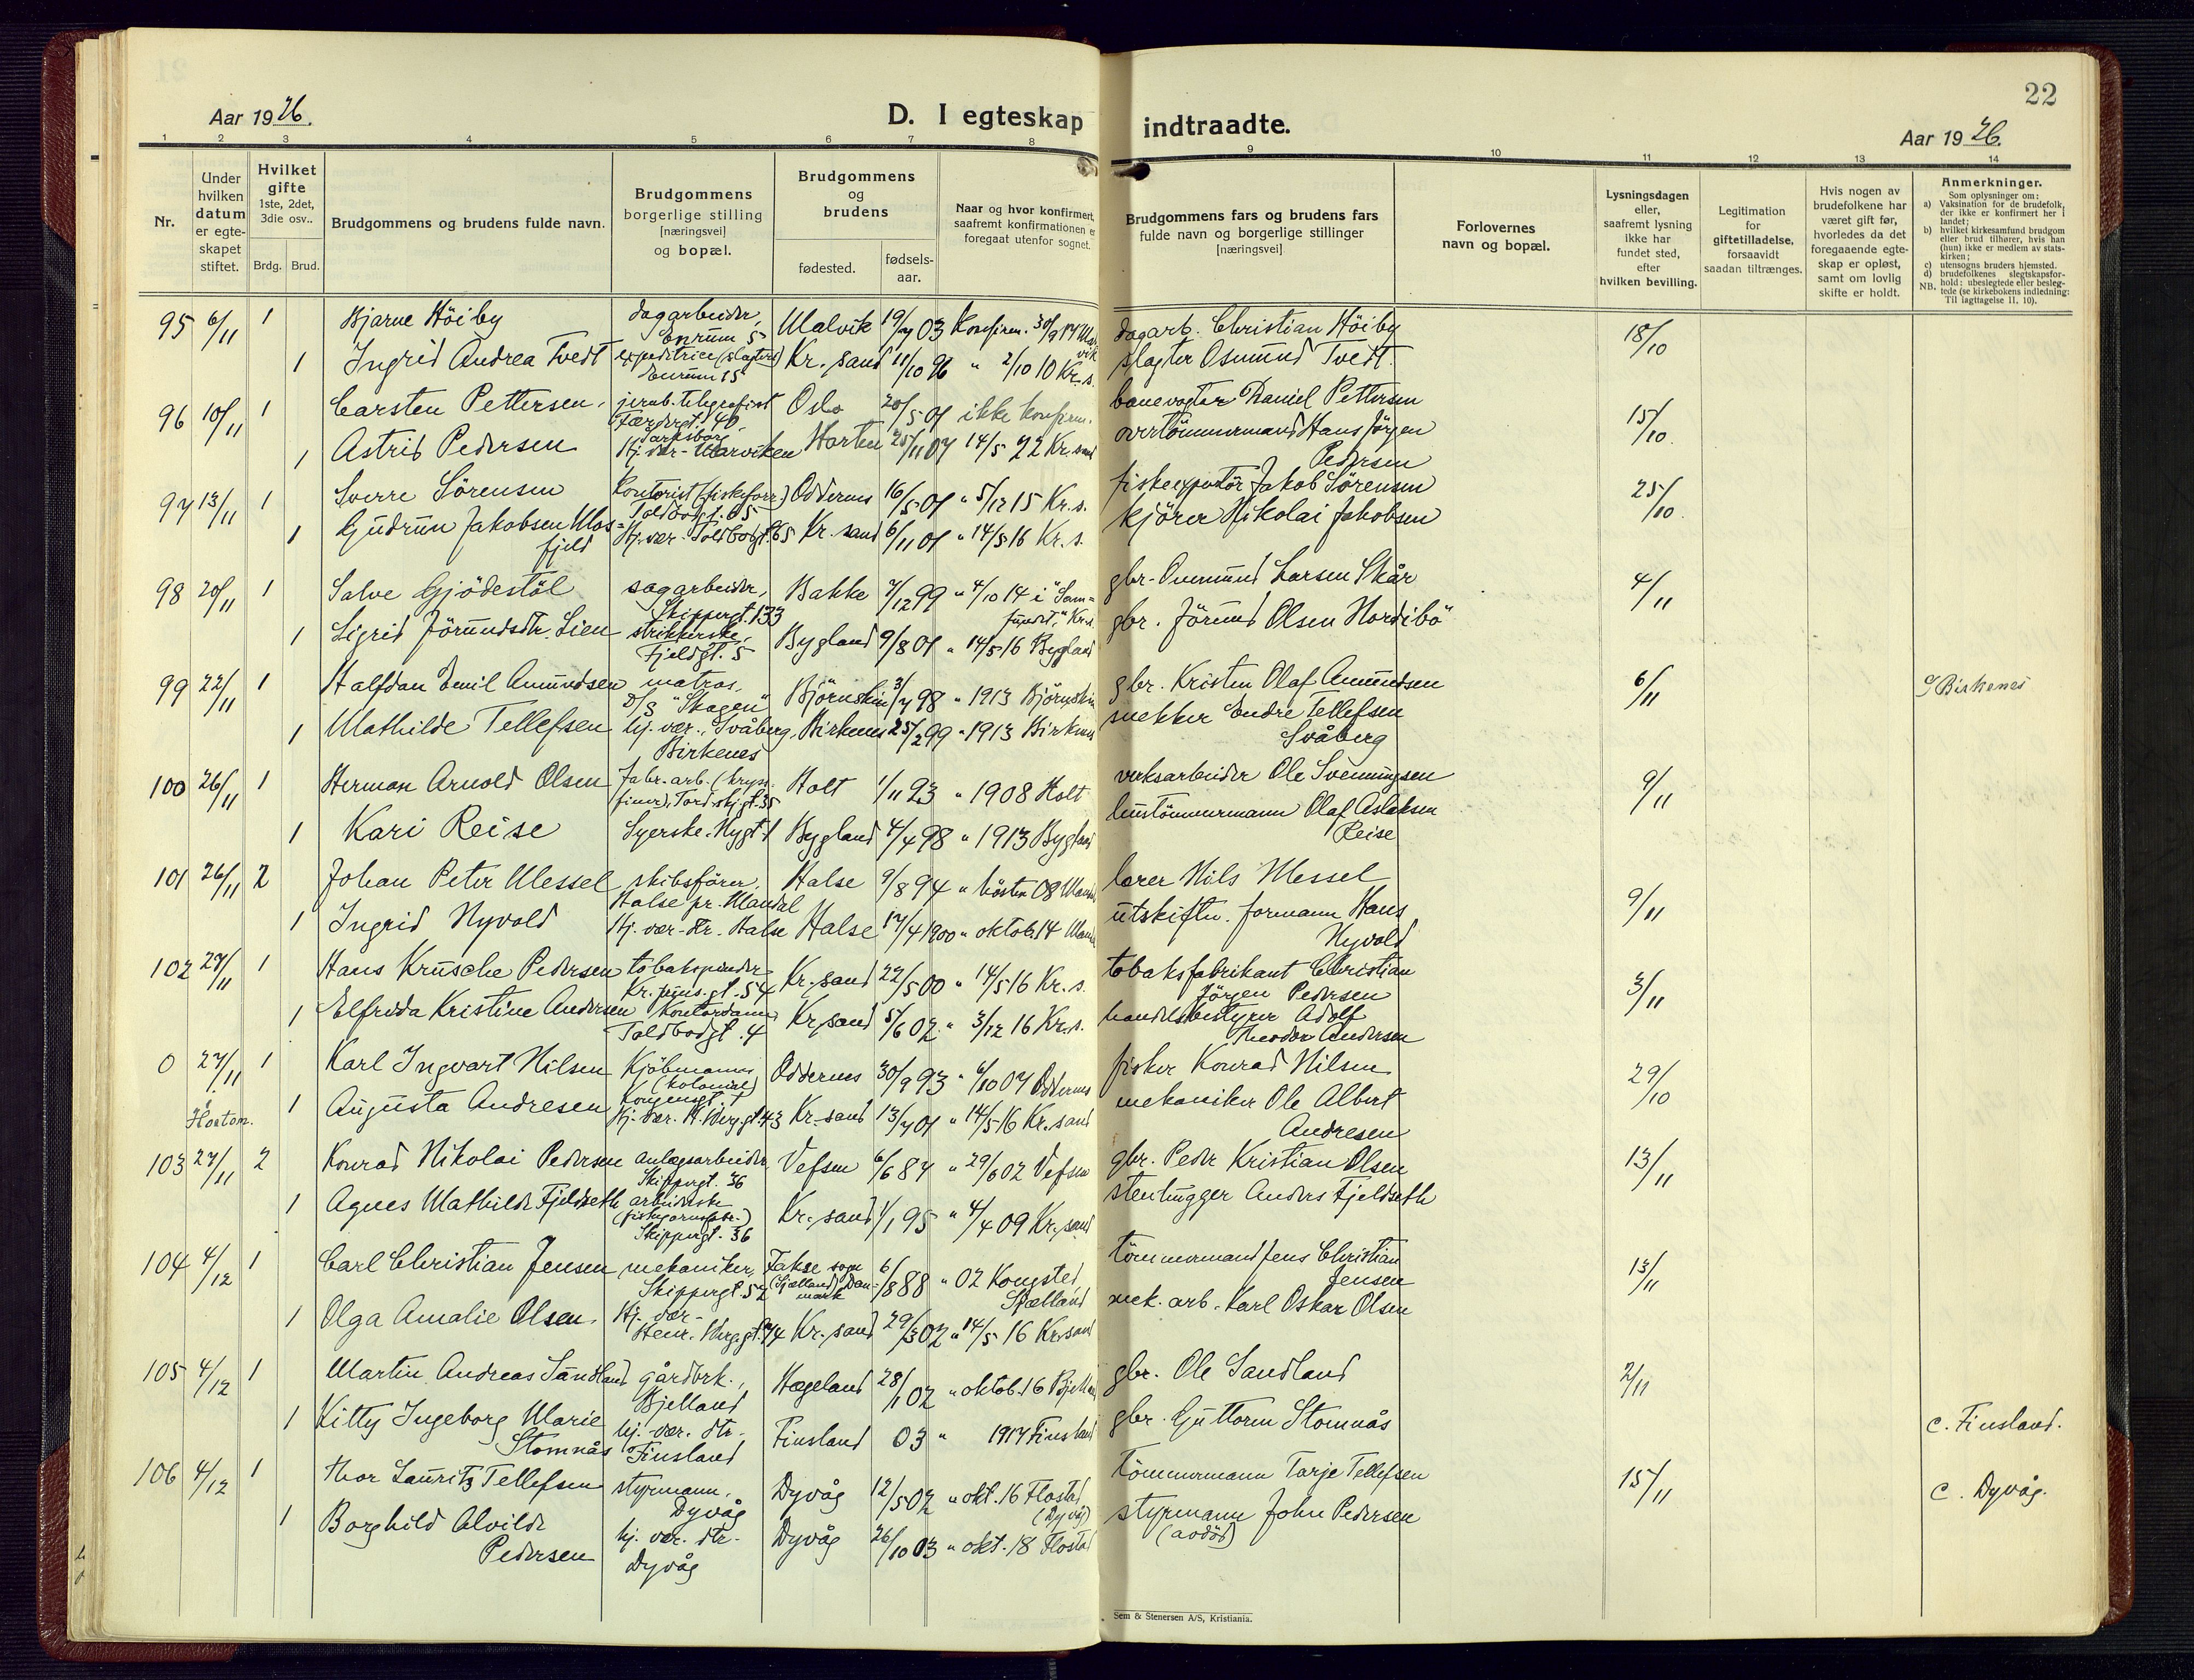 22
Aar 1926.
D. I egteskap indtraadte.
Aar 1926.
1 2 3 4 5 6 7 8 9 10 11 12 13 14
Nr.
Under hvilken datum er egteskapet stiftet.
Hvilket gifte 1ste, 2det, 3die osv..
Brdg. Brud.
Brudgommens og brudens fulde navn.
Brudgommens borgerlige stilling [næringsvei] og bopæl.
Brudgommens og brudens
fødested.
fødsels-aar.
Naar og hvor konfirmert, saafremt konfirmationen er foregaat utenfor sognet.
Brudgommens fars og brudens fars fulde navn og borgerlige stillinger [næringsvei]
Forlovernes navn og bopæl.
Lysningsdagen eller, saafremt lysning ikke har fundet sted, efter hvilken bevilling.
Legitimation for giftetilladelse, forsaavidt saadan tiltrænges.
Hvis nogen av brudefolkene har været gift før, hvorledes da det foregaaende egteskap er opløst, samt om lovlig skifte er holdt.
Anmerkninger.
Som oplysninger om:
a) Vaksination for de brudefolk, der ikke er konfirmert her i landet;
b) hvilket kirkesamfund brudgom eller brud tilhører, hvis han (hun) ikke er medlem av statskirken;
c) utensogns bruders hjemsted.
d) brudefolkenes slegtskapsforhold: ubeslegtede eller beslegtede (se kirkebokens indledning: Til iagttagelse II, 10).
NB.
95 6/11 1 Bjarne Höiby dagarbeider, Enrum 5 Malvik 19/7 03 Konfirm. 30/9 17 Malvik dagarb. Christian Höiby 18/10
1 Ingrid Andrea Tvedt expeditrice (slagteri) Enrum 15 Kr.sand 11/10 96 " 2/10 10 Kr.s. slagter Osmund Tvedt.
96 10/11 1 Carsten Pettersen, jernb. telegrafist Færdergt. 40, Oslo 20/5 01 ikke konfirm. banevogter Daniel Pettersen 15/10
1 Astrid Pedersen Hj. vær - Horten 25/11 07 14/5 22 Kr.sand overtömmermand Hans Jörgen Pedersen
97 13/11 1 Sverre Sörensen Kontorist (fiskeforr.) Toldbodgt. 65 Oddernes 16/5 01 " 5/12 15 Kr.s. fiskeexportör Jakob Sörensen 25/10.
1 Gudrun Jakobsen Mosfjeld Hj. vær - Toldbodgt. 65 Kr.sand 6/11 01 " 14/5 16 Kr.s. kjörer Nikolai Jakobsen
98 20/11 1 Salve Gjödestöl sagarbeider, Skippergt. 133 Bakke 7/12 99 " 4/10 14 i "Samfundet," Kr.s. gbr. Ommund Larsen Skår 4/11
1 Sigrid Jörundsdtr. Lien strikkerske, Fjeldgt. 5 Bygland 9/8 01 " 14/5 16 Bygland gbr. Jörund Olsen Nordibö
99 22/11 1 Halfdan Emil Amundsen matros, D/S "Skagen" Björnskin 3/7 98 " 1913 Björnskin gbr. Kristen Olaf Amundsen 6/11 c/ Birkenes
1 Mathilde Tellefsen hj. vær., Svåberg, Birkenes Birkenes 25/2 99 " 1913 Birkenes snekker Endre Tellefsen Svåberg
100 26/11 1 Herman Arnold Olsen fabr. arb. (kryssfiner), Tordskj.gt. 35 Holt 1/11 93 " 1908 Holt verksarbeider Ole Svenningsen 9/11
1 Kari Reise Syerske. Nygt 1 Bygland 4/4 98 " 1913 Bygland hustömmermann Olaf Aslaksen Reise
101 26/11 2 Johan Peter Messel skibsförer, Halse pr. Mandal Halse 9/8 94 " hösten 08 Mandal lærer Nils Messel 9/11
1 Ingrid Nyvold Hj. vær - Halse Halse 17/4 1900 " oktob. 14 Mandal utskiftn. formann Hans Nyvold
102 27/11 1 Hans Krusche Pedersen tobakspinder Kr. prins. gt. 54 Kr.sand 22/5 00 " 14/5 16 Kr.s. tobaksfabrikant Christian Jörgen Pedersen 3/11
1 Elfrida Kristine Andersen Kontordame Toldbodgt. 4 Kr.sand 5/6 02. " 3/12 16 Kr.s. handelsbestyrer Adolf Theodor Andersen
0 27/11 1 Karl Ingvart Nilsen Kjöbmann (kolonial) Kongensgt. 1 Oddernes 30/9 93 " 6/10 07 Oddernes fisker Konrad Nilsen 29/10
1 Augusta Andresen Hj. vær. H. Werg.gt 43 Kr.sand 13/7 01 " 14/5 16 Kr.sand mekaniker Ole Albert Andresen
103 27/11 2 Konrad Nikolai Pedersen anlægsarbeider, Skippergt. 36 Vefsen 6/6 87 " 29/6 02 Vefsen gbr. Peder Kristian Olsen 13/11
1 Agnes Mathilde Fjeldseth arbeiderske (fiskegarnsfabr.) Skippergt. 36 Kr.sand 1/1 95 " 4/4 09 Kr.sand stenhugger Anders Fjeldseth
104 4/12 1 Carl Christian Jensen mekaniker, Skippergt. 52 Fakse sogn (Sjælland) Danmark 6/8 88 " 02 Kongsted, Sjælland tömmermand Jens Christian Jensen 13/11
1 Olga Amalie Olsen. Hj. vær - Henr. Werg.gt. 74 Kr.sand 29/3 02 " 14/5 16 Kr.sand mek. arb. Karl Oskar Olsen
105 4/12 1 Martin Andreas Sandland gårdbrk., Bjelland Hægeland 28/1 02 " oktob. 16 Bjelland gbr. Ole Sandland 2/11
1 Kitty Ingeborg Marie Stomnås hj. vær. dtr. Finsland Finsland 03 " 1917 Finsland gbr. Guttorm Stomnås c. Finsland.
106 4/12 1 Thor Lauritz Tellefsen styrmann, Dyvåg Dyvåg 12/5 02 " okt. 16 Flosta (Dyvåg) tömmermann Tarje Tellefsen 15/11 c. Dyvåg.
1 Borghild Alvilde Pedersen hj. vær. dtr. Dyvåg Dyvåg 26/10 03 " okt. 18 Flosta styrmann John Pedersen (avdöd)
Sem & Stenersen A/S, Kristiania.